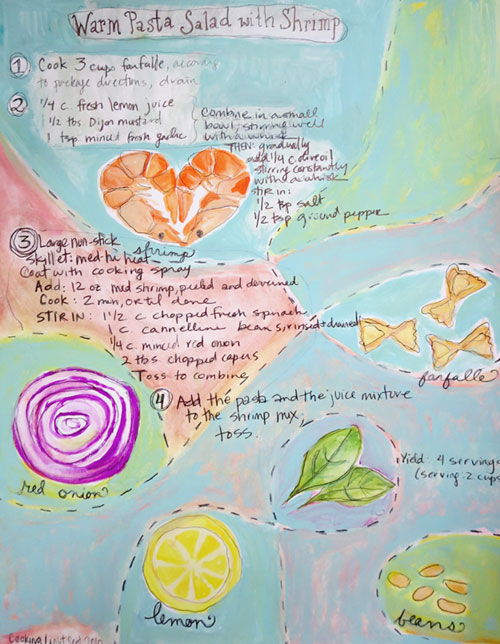 Warm Pasta Salad with Shrimp
1 Cook 3 cups farfalle, accordi
to package directions, drain
2 1/4 c. fresh lemon juice
1/2 tbs Dijon mustard
1 tsp minced fresh garlic
Combine in a small
bowl, stirring well
with a whisk
THEN: gradually
add 1/4 c. olive oil
stirring constantly
with a whisk
STIR IN:
1/2 tsp salt
1/2 tsp ground pepper
shrimp
3 Large non-stick
skillet: med hi heat
Coat with cooking spray
Add: 12 oz med shrimp, peeled and deveined
Cook: 2 min, or til done
STIR IN: 1 1/2 c chopped fresh spinach
1 c. cannelline beans, rinsed + drained
1/4 c. minced red onion
2 tbs. chopped capers
Toss to combine
farfalle
4 Add the pasta and the juice mixture
to the shrimp mix,
toss.
red onion
Yield: 4 servings
(serving: 2 cups
lemon
beans
Cooking Light